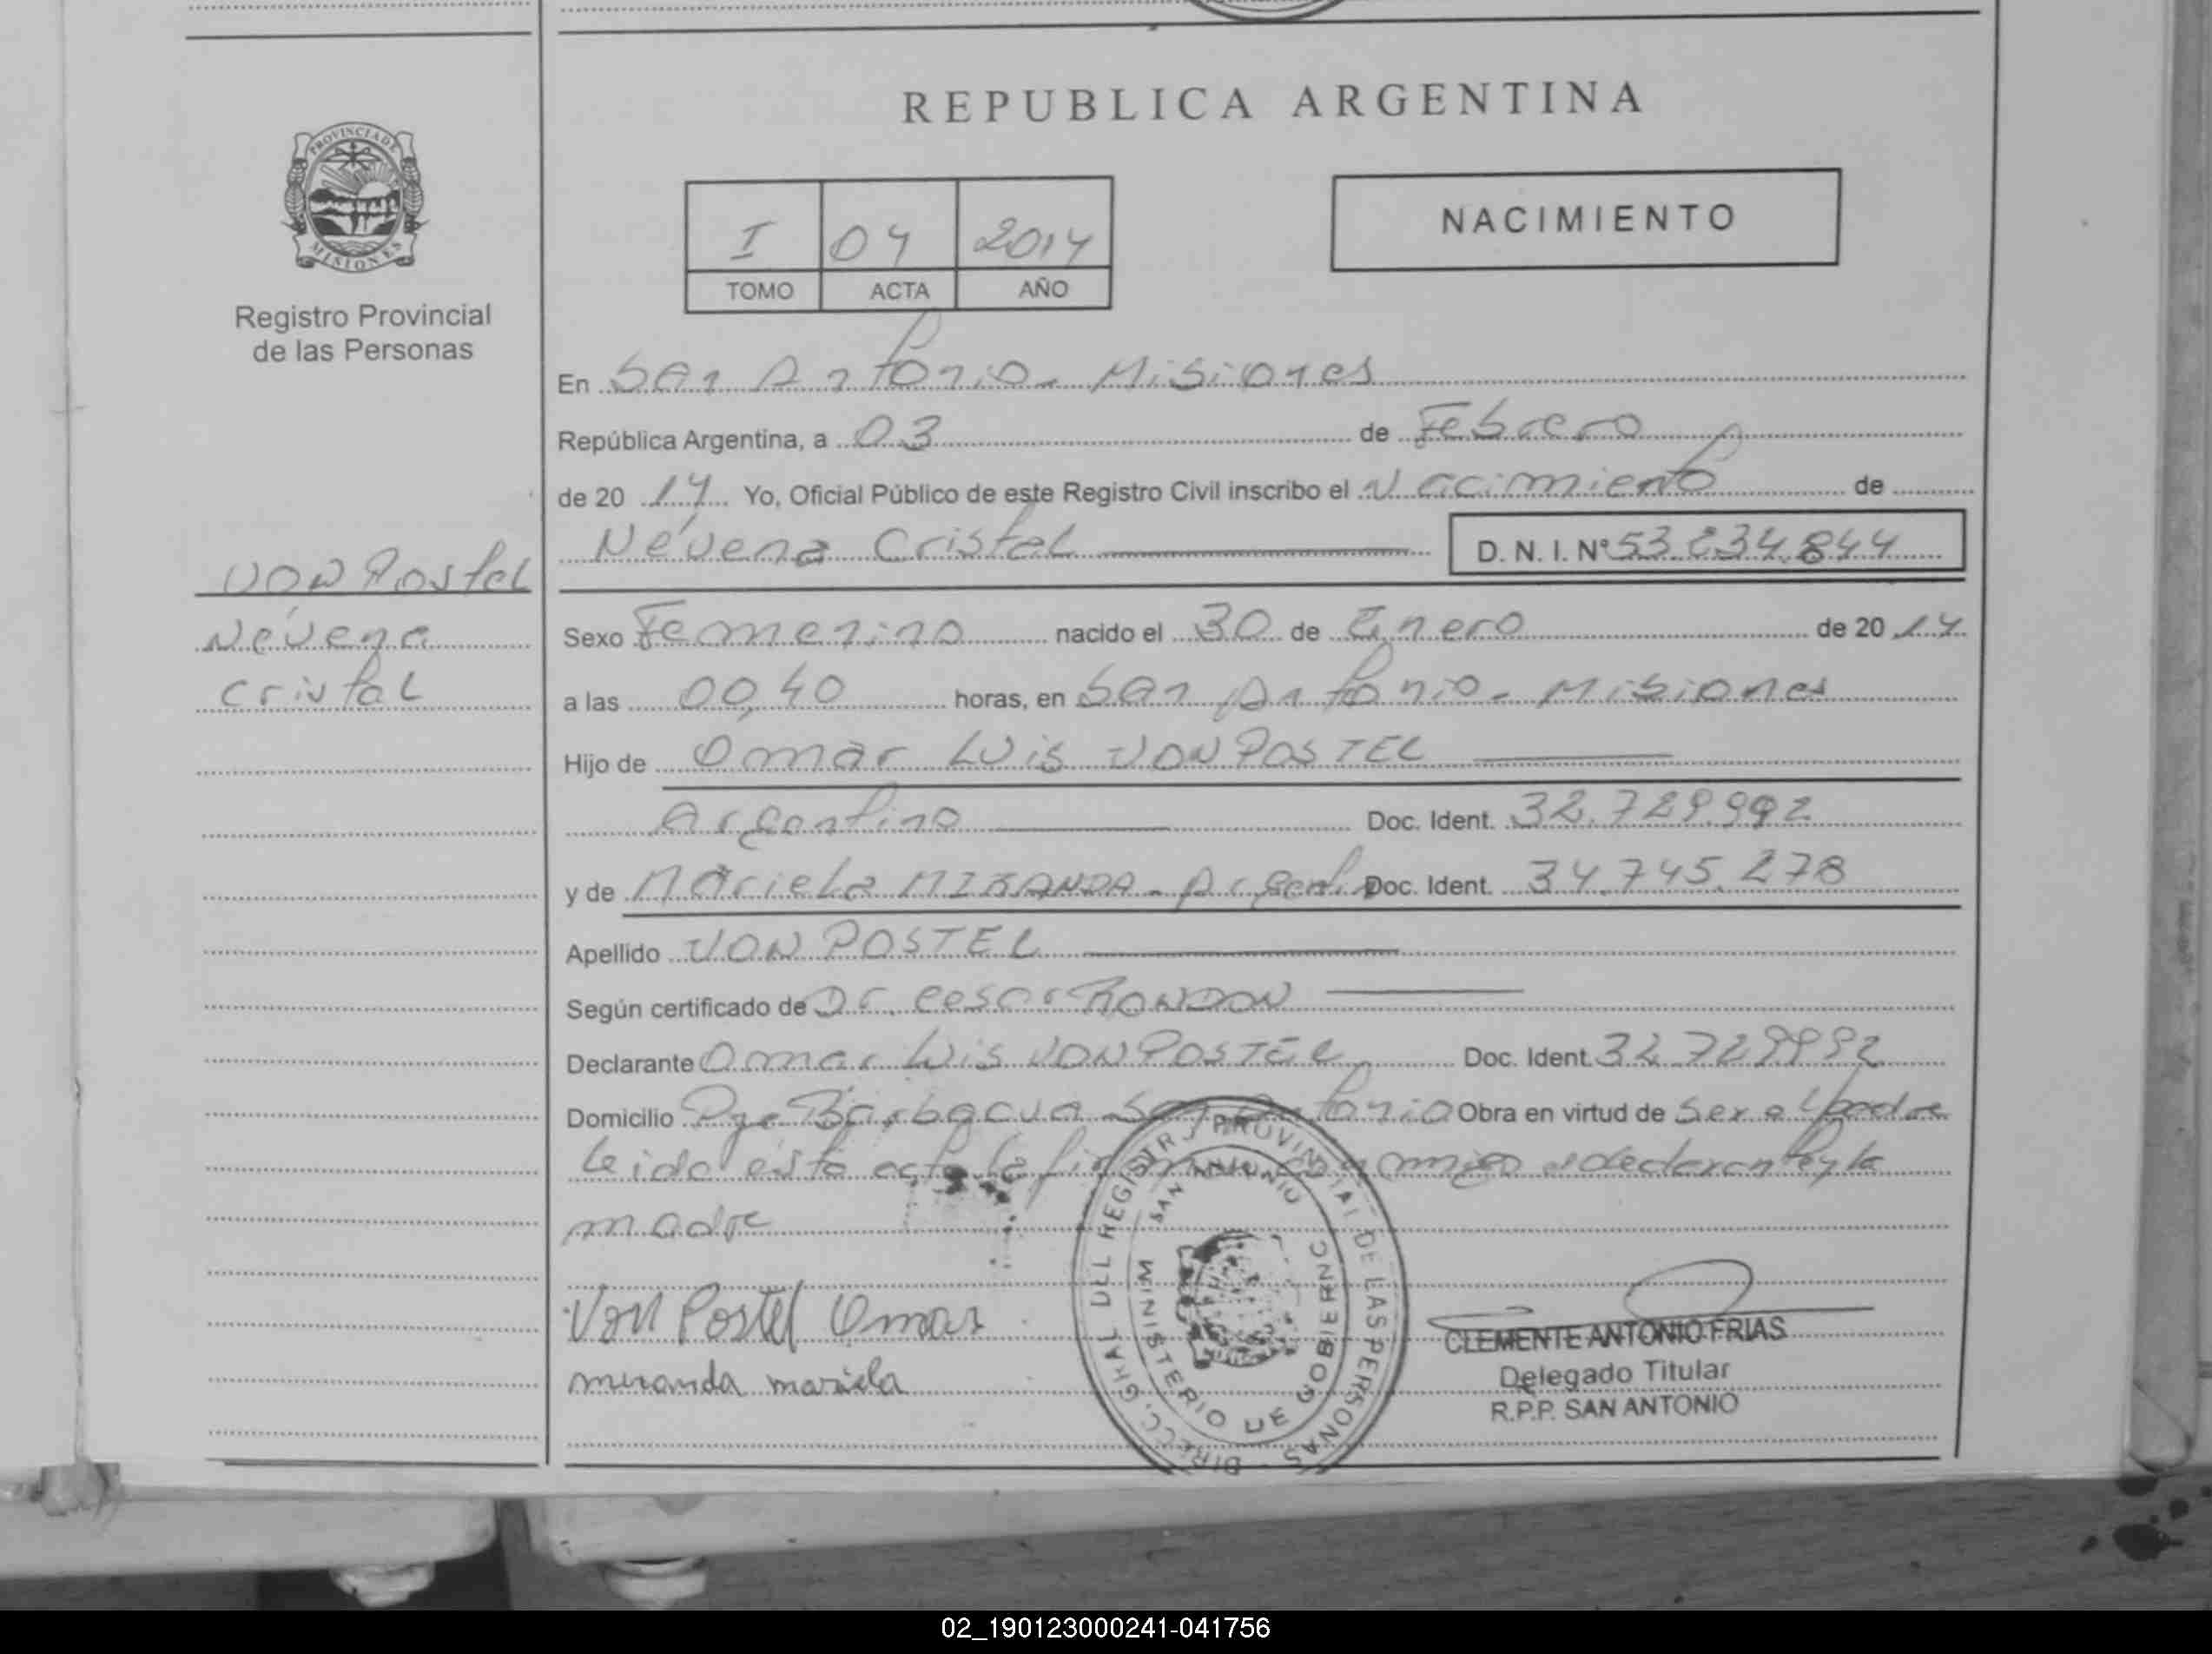 REPUBLICA ARGENTINA
PROVINCIA DE MISIONES
Registro Provincial
de las Personas
I 04 2014
TOMO ACTA AÑO
NACIMIENTO
En San Antonio - Misiones
República Argentina, a 03 de Febrero
de 20 14 Yo, Oficial Público de este Registro Civil inscribo el Nacimiento de
Névena Cristal D. N. I. Nº 53.234.844
VON Postel
Névena
Cristal
Sexo Femenino nacido el 30 de Enero de 20 14
a las 00,40 horas, en San Antonio - Misiones
Hijo de Omar Luis VON POSTEL
Argentino Doc. Ident. 32.729.992
y de Mariela MIRANDA - Argentina Doc. Ident. 34.745.278
Apellido VON POSTEL
Según certificado de Dr. Cesar RONDON
Declarante Omar Luis VON POSTEL Doc. Ident. 32.729992
Domicilio Pje Barbacua San Antonio Obra en virtud de Ser el padre
leida esta acta la firman conmigo el declarante y la
madre
Von Postel Omar
miranda mariela
DIRECC. GRAL DEL REGISTRO PROVINCIAL DE LAS PERSONAS
SAN ANTONIO
MINISTERIO DE GOBIERNO
CLEMENTE ANTONIO FRIAS
Delegado Titular
R.P.P. SAN ANTONIO
02_190123000241-041756